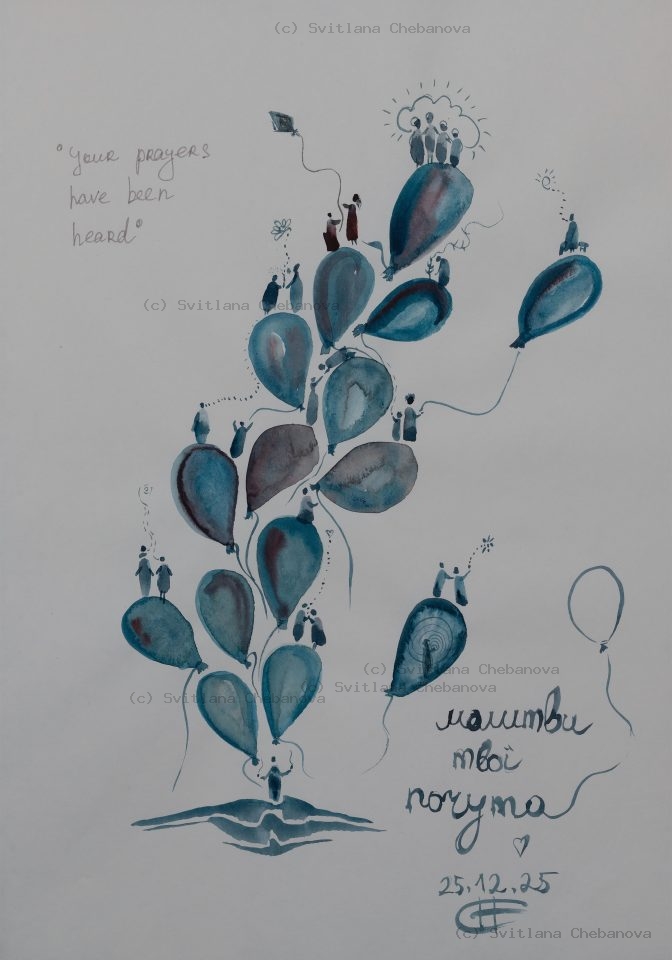 (c) Svitlana Chebanova
"Your prayers
have been
heard"
(c) Svitlana Chebanova
(c) Svitlana Chebanova
(c) Svitlana Chebanova
(c) Svitlana Chebanova
молитви
твої
почута
25.12.25
(c) Svitlana Chebanova